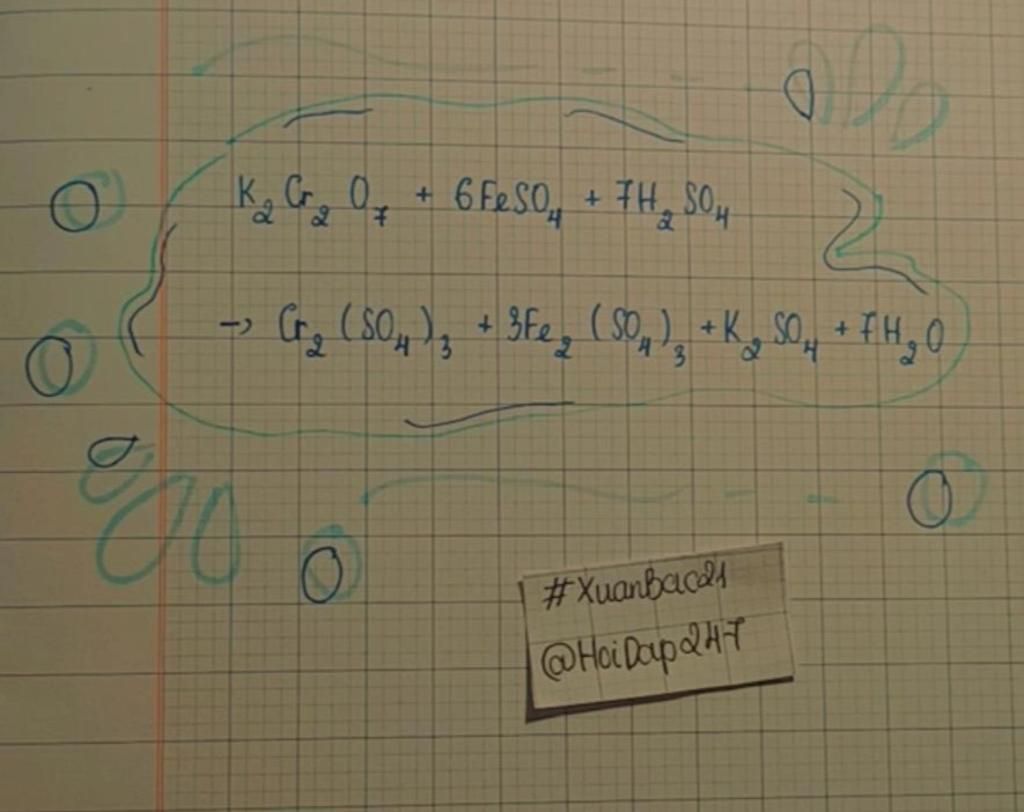 K₂Cr₂O₇ + 6FeSO₄ + 7H₂SO₄
→ Cr₂(SO₄)₃ + 3Fe₂(SO₄)₃ + K₂SO₄ + 7H₂O
#XuanBac21
@HoiDap247